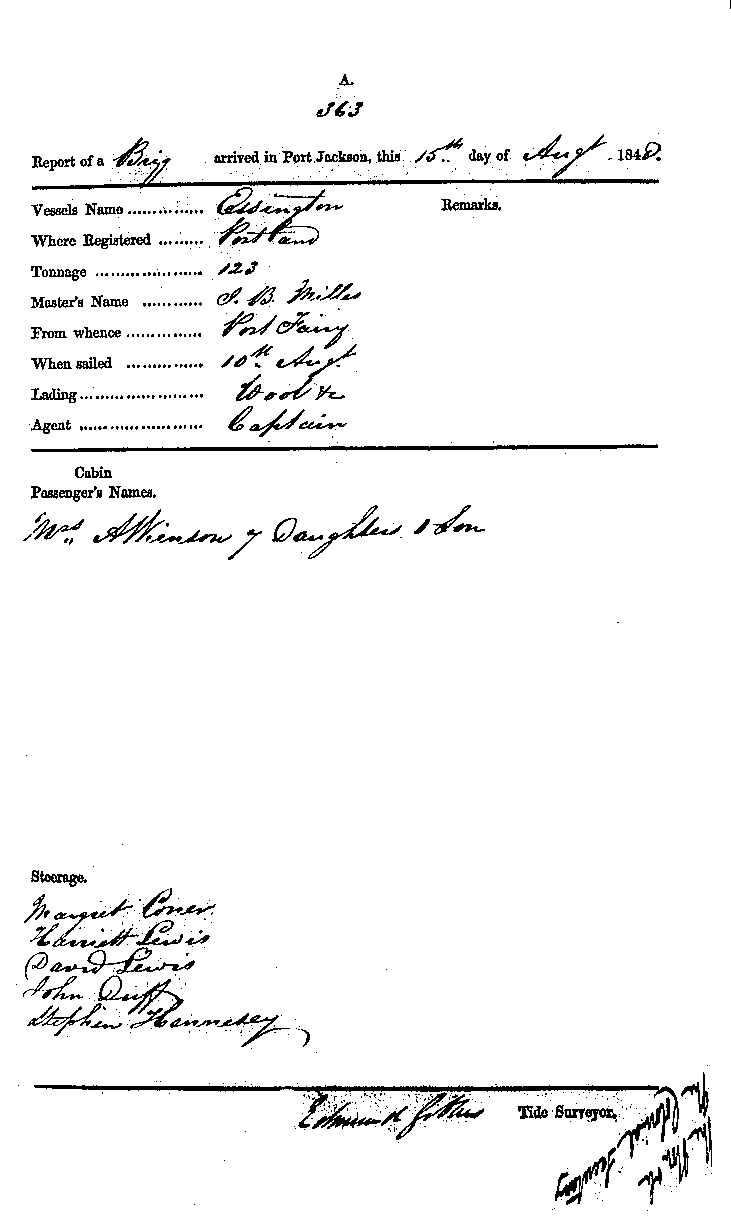 A.
363
Report of a Brigg arrived in Port Jackson, this 15th day of Augt 1848.
Vessels Name ............... Essington
Remarks.
Where Registered ......... Portland
Tonnage ..................... 123
Master's Name ............ J. B. Milles
From whence ............... Port Fairy
When sailed ............... 10th Augt
Lading ........................ Wool &c
Agent ........................ Captain
Cabin
Passenger's Names.
Mrs Atkienson 7 Daughters 1 Son
Steerage.
Margret
Harriett Lewis
David Lewis
John Duff
Stephen Hannesey
Edmund Tide Surveyor,
The
Colonial Secretary